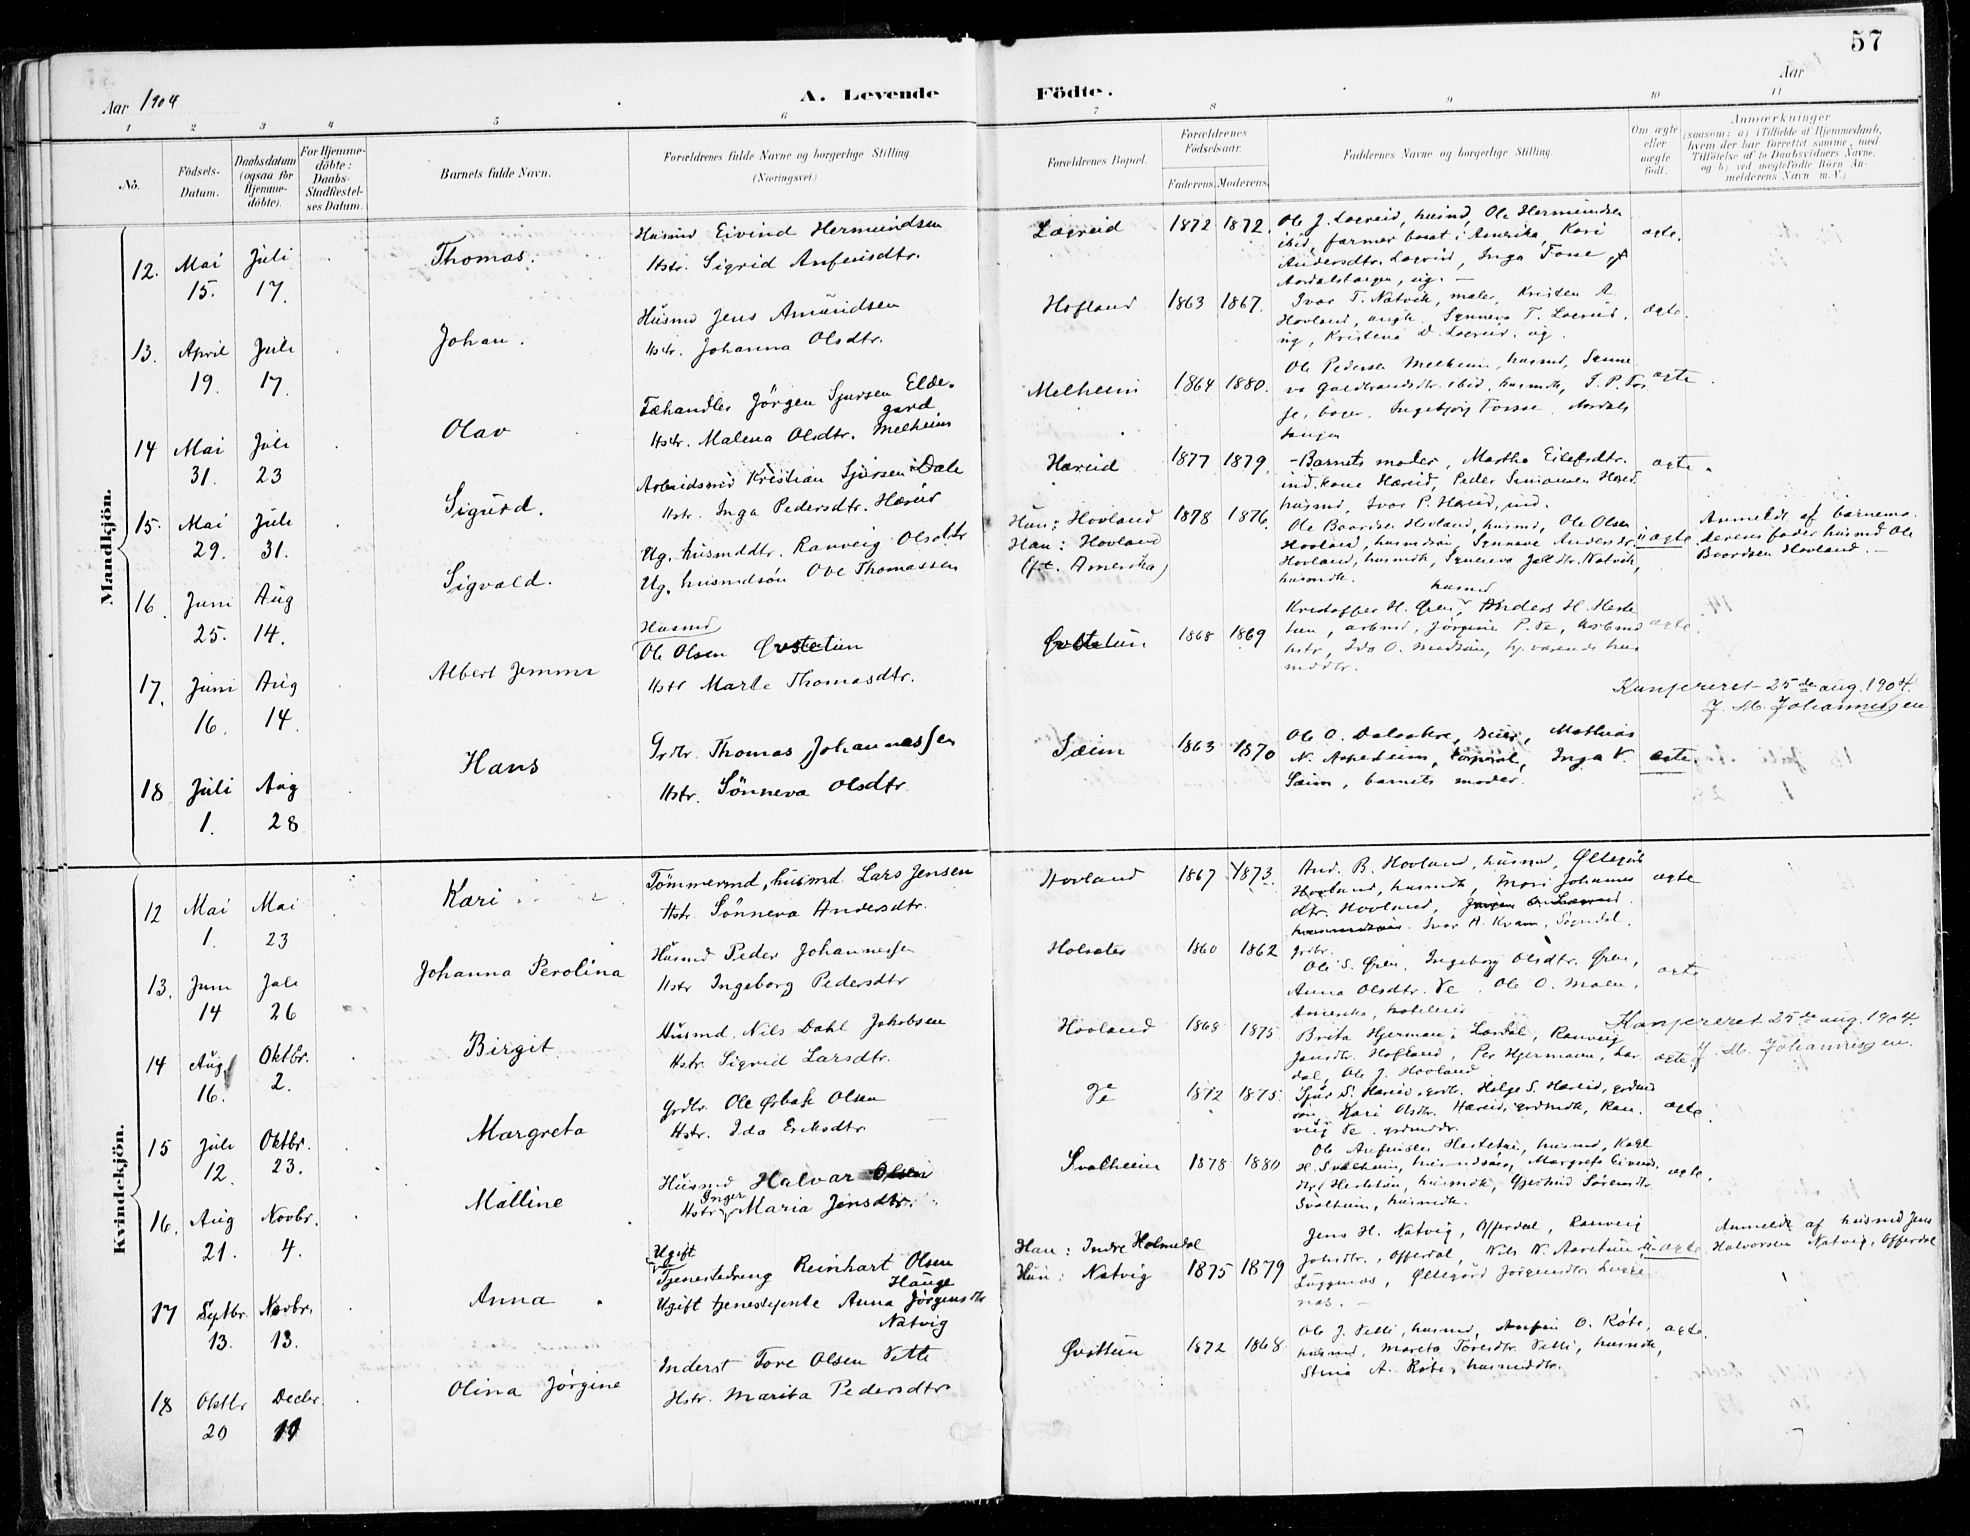 57
Aar 1904
A. Levende
Födte.
Aar
1
2
3
4
5
6
7
8
9
10
11
No.
Födsels-
Datum.
Daabsdatum
(ogsaa for
Hjemme-
döbte).
For Hjemme-
döbte:
Daabs-
Stadfæstel-
ses Datum.
Barnets fulde Navn.
Forældrenes fulde Navne og borgerlige Stilling.
(Næringsvei)
Forældrenes Bopæl.
Forældrenes
Födselsaar.
Faderens.
Moderens.
Faddernes Navne og borgerlige Stilling.
Om ægte
eller
uægte
födt.
Anmærkninger
(saasom: a) i Tilfælde af Hjemmedaab,
hvem der har forrettet samme, med
Tilföielse af to Daabsvidners Navne,
og b) ved uægtefödte Börn An-
melderens Navn m. V.)
Mandkjön.
12. Mai 15. Juli 17. Thomas.
Husmd Eivind Hermundsen
Hstr. Sigrid Anfinsdtr.
Lægreid 1872 1872.
Ole J. Lægreid, husmd, Ole Hermundsen
ibid, farmer bosat i Amerika, Kari
Andersdtr. Lægreid, Inga
ægte.
13. April 19. Juli 17. Johan.
Husmd Jens Amundsen
Hstr. Johanna Olsdtr.
Hofland 1863 1867.
Ivar T. Natvik, maler, Kristen A.
Hovland, ungk. Synneva T. Lægreid,
ug, Kristena D. Lægreid, ug.
ægte.
14 Mai 31. Juli 23 Olav
Fæhandler Jörgen Sjursen Elde-
gard
Hstr. Malena Olsdtr. Melheim
Melheim 1864 1880.
Ole Pedersen Melheim, husmd, Sönne
va Guldbrandsdtr. ibid, husmdk,
ægte.
15. Mai 29. Juli 31. Sigurd.
Arbeidsmd Kristian Sjursen Dale
Hstr. Inga Pedersdtr. Hæreid
Hæreid 1877 1879.
Barnets moder, Martha Eilefsdtr.
ind. kone Hæreid, Peder Simonsen Hæreid
husmd, Ivar P. Hæreid, ind.
ægte.
16. Juni 25. Aug 14. Sigvald.
Ug. husmddtr. Ranveig Olsdtr
Ug. husmdsön Ove Thomassen
Hun: Hovland
Han: Hovland
(f.t. Amerika)
1878 1876.
Ole Baardsen Hovland, husmd, Ole Olsen
Hovland, husmdsön, Synneve Andersdtr.
Hovland, husmdk, Synneva Natvik,
husmdk.
uægte
Anmeldt af barnemo-
derens fader husmd Ole
Baardsen Hovland.
17. Juni 16. Aug 14. Albert Jemmi
Husmd
Ole Olsen Øvstetun
Hstr Marte Thomasdtr.
Øvstetun 1868 1869
husmd
Kristoffer H. Øren, Anders H. Heste
tun, arbmd, Jörgine P. Ve, arbmd
hstr, Ida O. hj. værende hus
mddtr.
ægte.
Konfereret 25de aug. 1904.
J. M. Johannessen
18 Juli 1. Aug 28 Hans
Grdbr. Thomas Johannessen
Hstr. Sönneva Olsdtr.
Sæim 1863 1870
Ole O. Dalaaker, Mathias
N. Asperheim, korporal, Inga V.
Sæim, barnets moder.
ægte
Kvindekjön.
12 Mai 1. Mai 23 Kari
Tömmermd, husmd. Lars Jensen
Hstr. Sönneva Andersdtr.
Hovland 1867 1873
And. B. Hovland, husmd, Øllegård
Hovland, husmdk, Mari Johannes
dtr. Hovland, Jørgen O. Lægreid
husmandsøn. Ivar A. Kvam, Sogndal,
grdbr.
ægte
13. Juni 14 Juli 26 Johanna Perolina
Husmd Peder Johannessen
Hstr Ingeborg Pedersdtr
Holsæter 1860 1862
Ole S. Øren, Ingeborg Olsdtr. Øren,
Anna Olsdtr. Ve. Ole O. Moen,
Amerika,
ægte
14 Aug 16. Oktbr. 2. Birgit
Husmd. Nils Dahl Jakobsen
Hstr. Sigrid Larsdtr.
Hovland 1868 1875
Brita Hjermann Lærdal, Ranveig
Jensdtr. Hofland, Per Hjermann, Lær
dal, Ole J. Hovland
ægte
Konfereret 25de aug. 1904.
J. M. Johannessen.
15 Juli 12. Oktbr. 23. Margreta
Grdbr. Ole Ørbæk Olsen
Hstr. Ida Eriksdtr
Ve 1872 1875.
Sjur S. Hæreid, grdbr. Helge S. Hæreid, grdmd
sön, Kari Olsdtr. Hæreid, grdmdk, Ran
veig Ve. grdmddr.
ægte
16. Aug 21. Novbr. 4. Malline
Husmd Halvar Olsen
Hstr Inger Maria Jensdtr.
Svalheim 1878 1880
Ole Anfinsen Hestetun, husmd, Karl
H. Svalheim, husmdsön, Margrete Eivinds
dtr. Hestetun, husmdk, Gjertrud Sörensdtr
Svalheim, husmdk.
ægte.
17 Septbr. 13. Novbr. 13. Anna
Ugift
Tjenestedreng Reinhart Olsen
Hauge
Ugift tjenestejente Anna Jörgensdtr
Natvig
Han: Indre Holmedal
Hun: Natvig 1875 1879
Jens H. Natvig, Offerdal, Ranveig
Johsdtr., Offerdal, Nils N. Aaretun
Luggenæs, Øllegård Jörgensdtr. Lugge
næs.
uægte
Anmeldt af husmd Jens
Halvorsen Natvig, Offerdal
18 Oktbr 20 Decbr 11 Olina Jörgine
Inderst Tore Olsen Vetti
Hstr. Marita Pedersdtr
Øvittun 1872 1868.
Ole J. Vetti, husmd, Anfin O. Röte,
husmd, Mareta Toresdtr. Vetti, husmdk,
Stina A. Röte, husmddtr.
ægte.